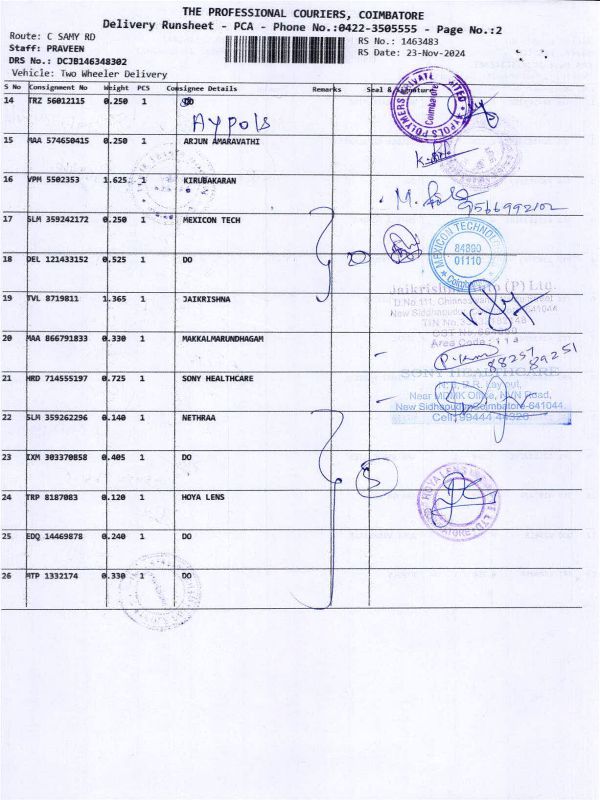 THE PROFESSIONAL COURIERS, COIMBATORE
Delivery Runsheet - PCA - Phone No.:0422-3505555 - Page No.:2
Route: C SAMY RD
RS No.: 1463483
Staff: PRAVEEN
RS Date: 23-Nov-2024
DRS No.: DCJB146348302
Vehicle: Two Wheeler Delivery
S No Consignment No Weight PCS Consignee Details Remarks Seal & Signature
14 TRZ 56012115 0.250 1 DO
AYPOLS
AYPOLS POLYMERS PRIVATE LIMITED Coimbatore
15 MAA 574650415 0.250 1 ARJUN AMARAVATHI
16 VPM 5502353 1.625 1 KIRUBAKARAN
9566992102
17 SLM 359242172 0.250 1 MEXICON TECH
MEXICON TECHNOLO
84890
01110
Coimbatore
18 DEL 121433152 0.525 1 DO
19 TVL 8719811 1.365 1 JAIKRISHNA
Jaikrishna (P) Ltd.
D.No.111, Street
New Sidhapudur 641044
Area Code: 114
20 MAA 866791833 0.330 1 MAKKALMARUNDHAGAM
88257 89251
21 HRD 714555197 0.725 1 SONY HEALTHCARE
SONY HEALTHCARE
Layout,
Near MDMK Office, NVN Road,
New Sidhapudur, Coimbatore-641044.
Cell: 99444-44320
22 SLM 359262296 0.140 1 NETHRAA
23 IXM 303370858 0.405 1 DO
5
24 TRP 8187083 0.120 1 HOYA LENS
HOYA LENS LTD
25 EDQ 14469878 0.240 1 DO
26 MTP 1332174 0.330 1 DO